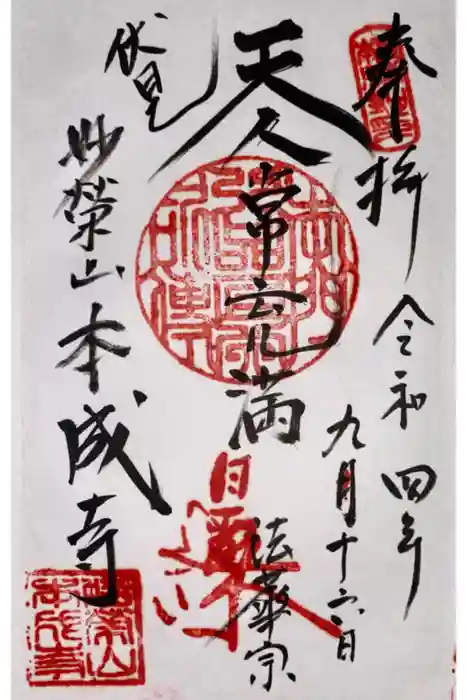 奉拝
令和四年
九月十六日
天人常充満
法華宗
伏見
妙榮山本成寺